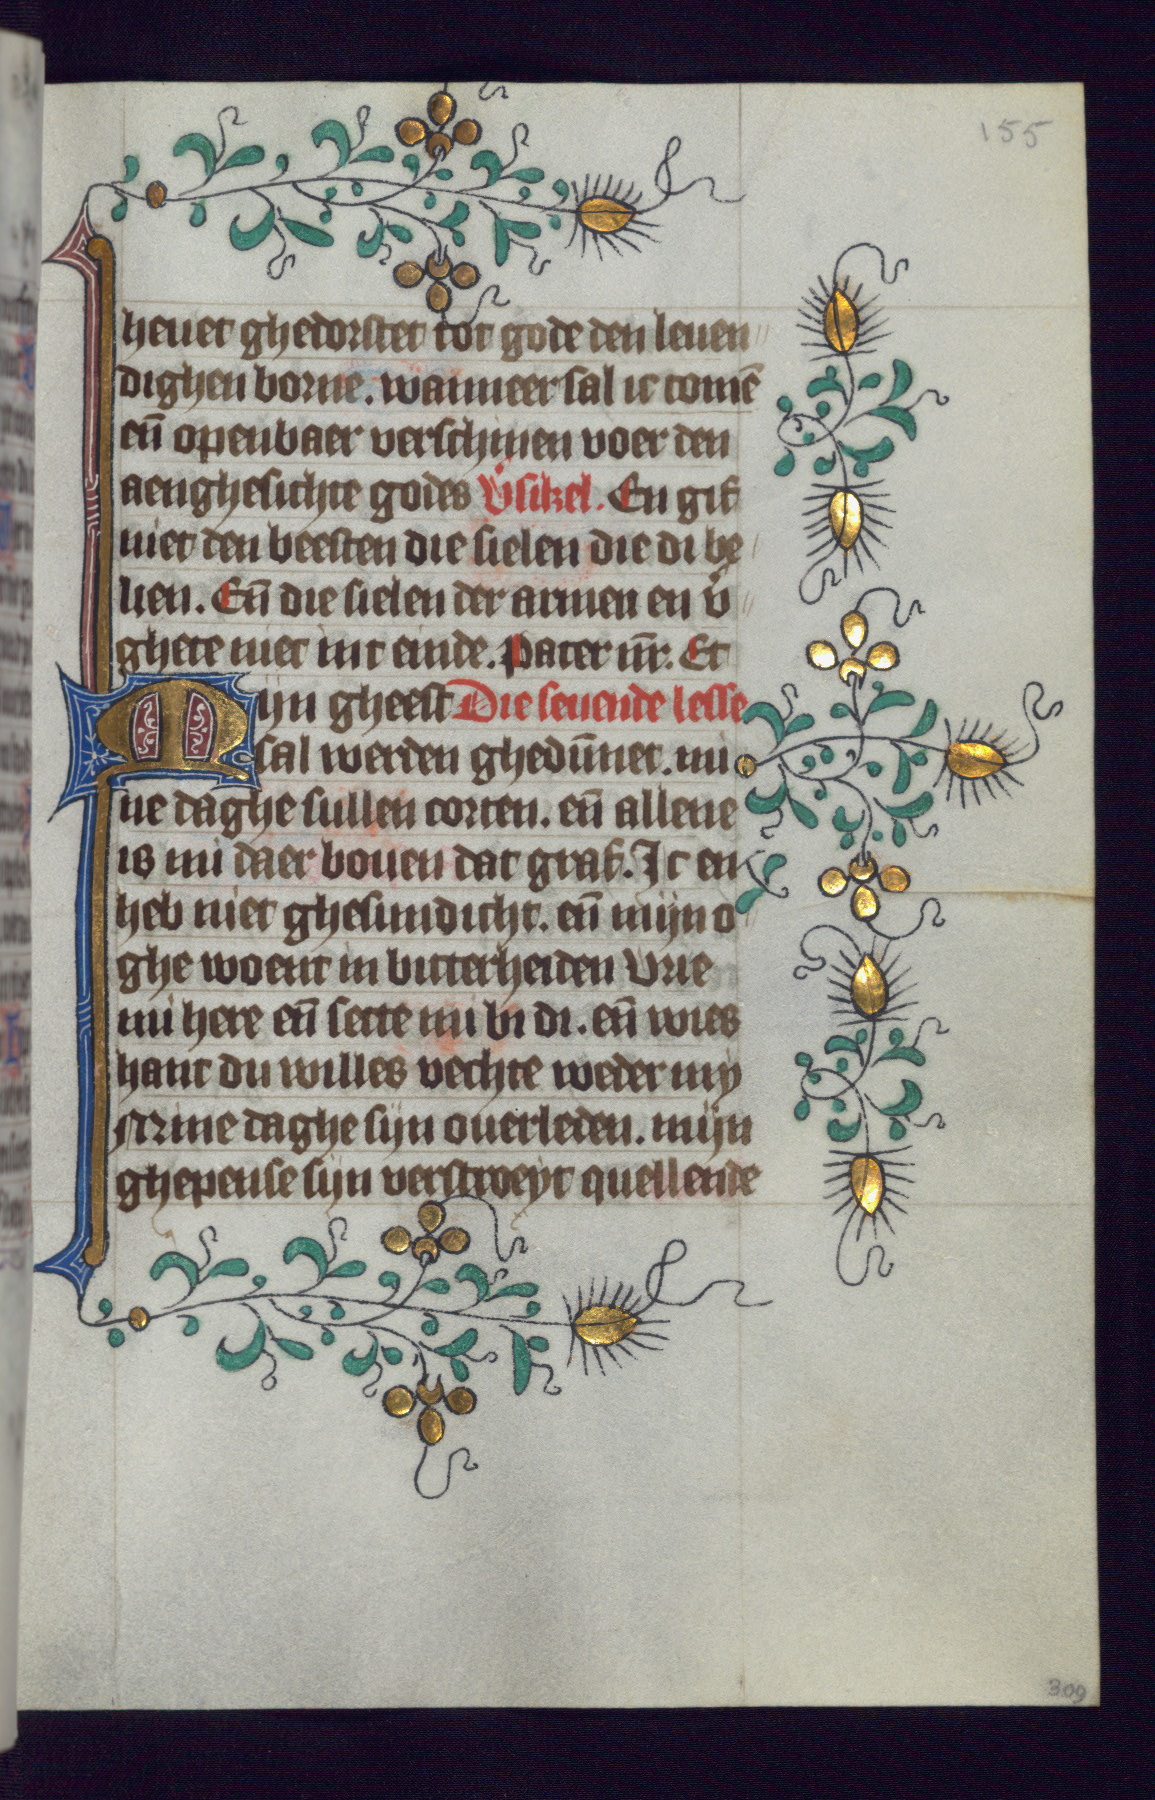 155
heuet ghedorstet tot gode den leuen
dighen borne. wanneer sal ic comē
eñ openbaer verschinen voer den
aenghesichte godes v̛sikel. En gif
niet den beesten die sielen die di be
lien. Eñ die sielen der armen en v̛
ghete niet int einde. Pater nr̄. Et
Mijn gheest Die seuende lesse
sal werden ghedūnet. mi
ne daghe sullen corten. eñ allene
is mi daer bouen dat graf. Ic en
heb niet ghesundicht. eñ mijn o
ghe woent in bitterheiden Vrie
mi here eñ sette mi bi di. eñ wies
hant du willes vechte weder mij
Mine daghe sijn ouerleden. mijn
ghepense sijn verstroeyt quellende
309